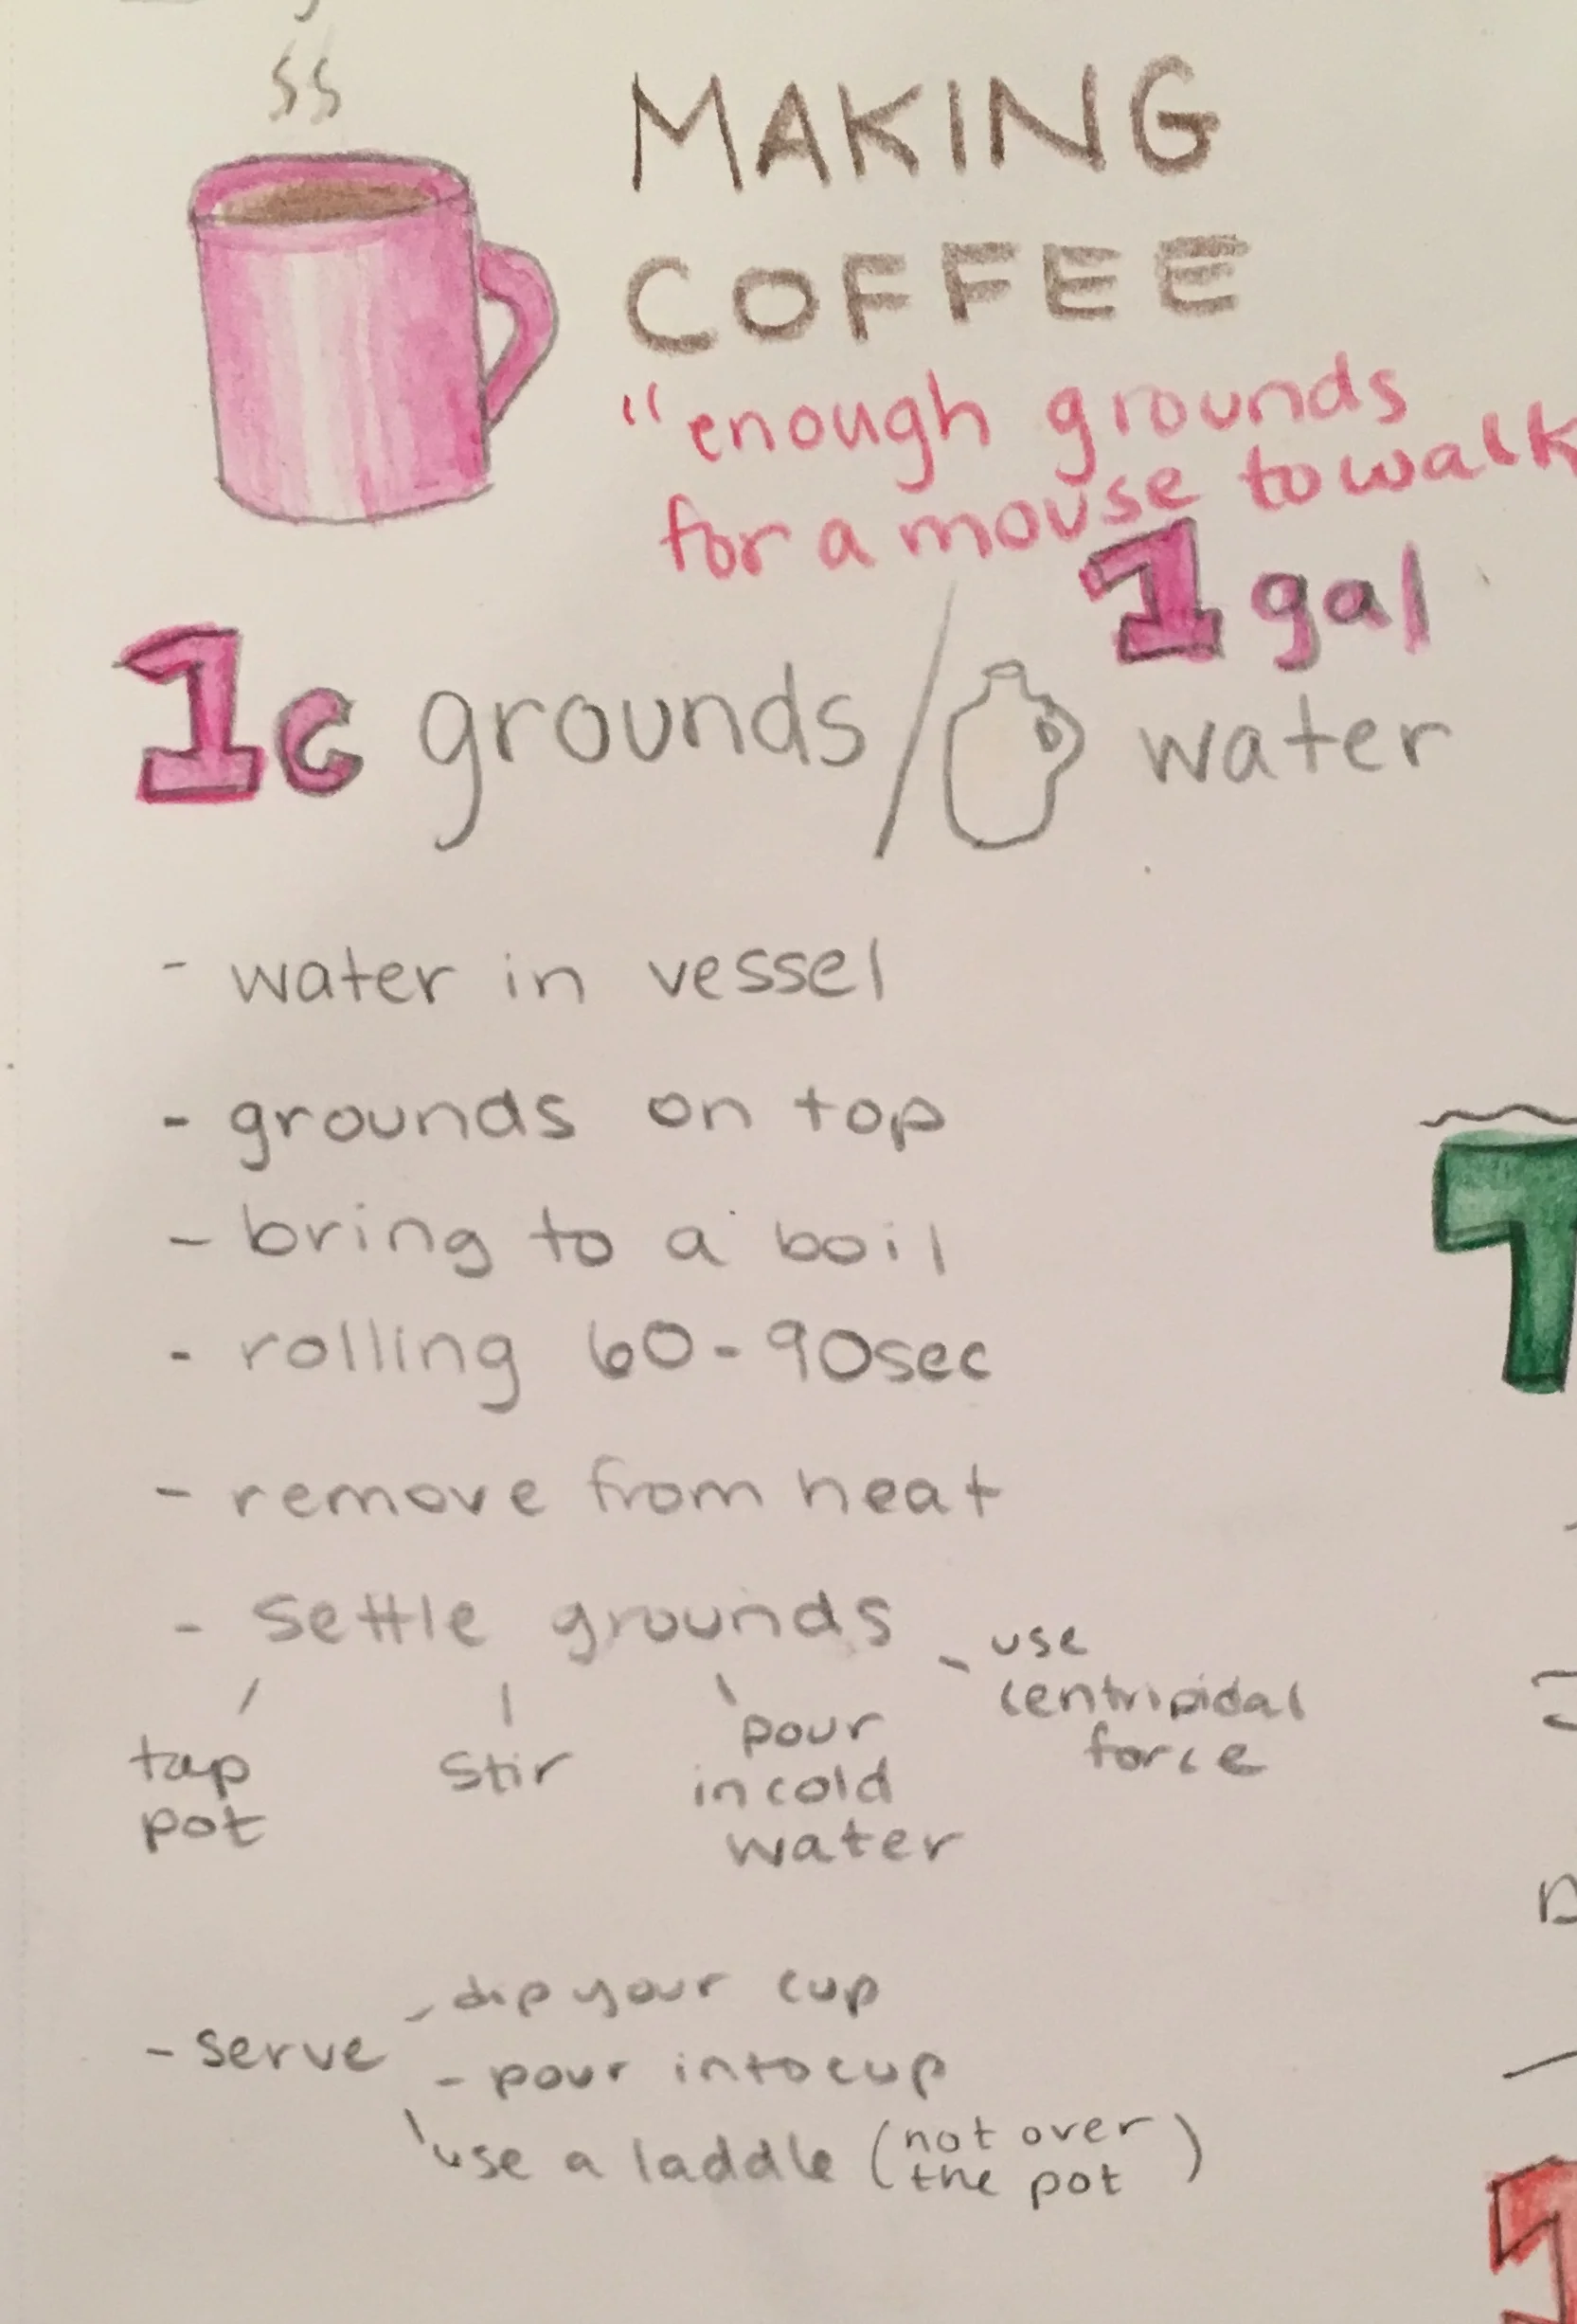 MAKING
COFFEE
"enough grounds
for a mouse to walk
1 gal
1c grounds / water
- water in vessel
- grounds on top
- bring to a boil
- rolling 60-90sec
- remove from heat
- settle grounds
tap
pot
stir
pour
in cold
water
use
centripidal
force
- serve
- dip your cup
- pour into cup
use a laddle (not over
the pot)
T
1